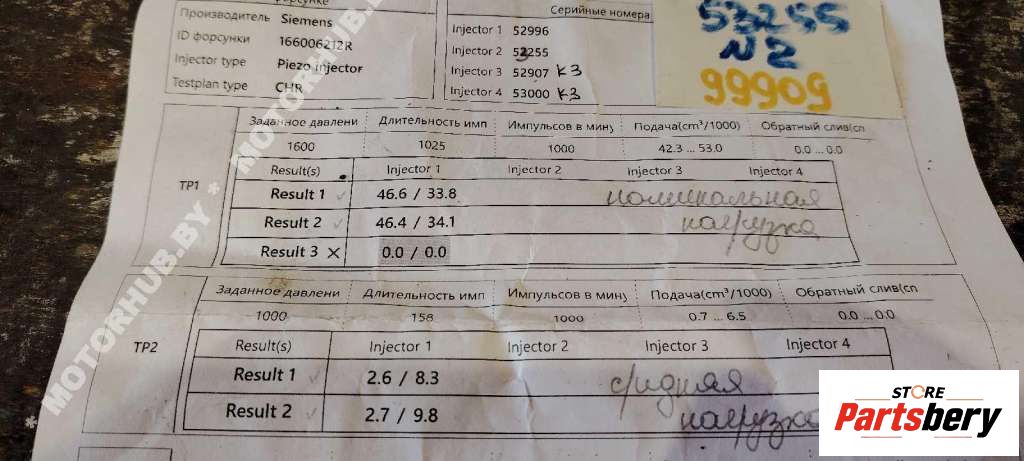 форсунке
Производитель Siemens
ID форсунки 166006212R
Injector type Piezo injector
Testplan type CHR
Серийные номера
Injector 1 52996
Injector 2 53255
Injector 3 52907 КЗ
Injector 4 53000 КЗ
53255
N2
99909
TP1
Заданное давлени Длительность имп Импульсов в мину Подача(cm³/1000) Обратный слив(сп
1600 1025 1000 42.3 ... 53.0 0.0 ... 0.0
Result(s) Injector 1 Injector 2 Injector 3 Injector 4
Result 1 ✓ 46.6 / 33.8 номинальная
Result 2 ✓ 46.4 / 34.1 нагрузка
Result 3 × 0.0 / 0.0
TP2
Заданное давлени Длительность имп Импульсов в мину Подача(cm³/1000) Обратный слив(сп
1000 158 1000 0.7 ... 6.5 0.0 ... 0.0
Result(s) Injector 1 Injector 2 Injector 3 Injector 4
Result 1 ✓ 2.6 / 8.3 средняя
Result 2 ✓ 2.7 / 9.8 нагрузка
* MOTORHUB.BY * MOTORHUB.BY
STORE
Partsbery